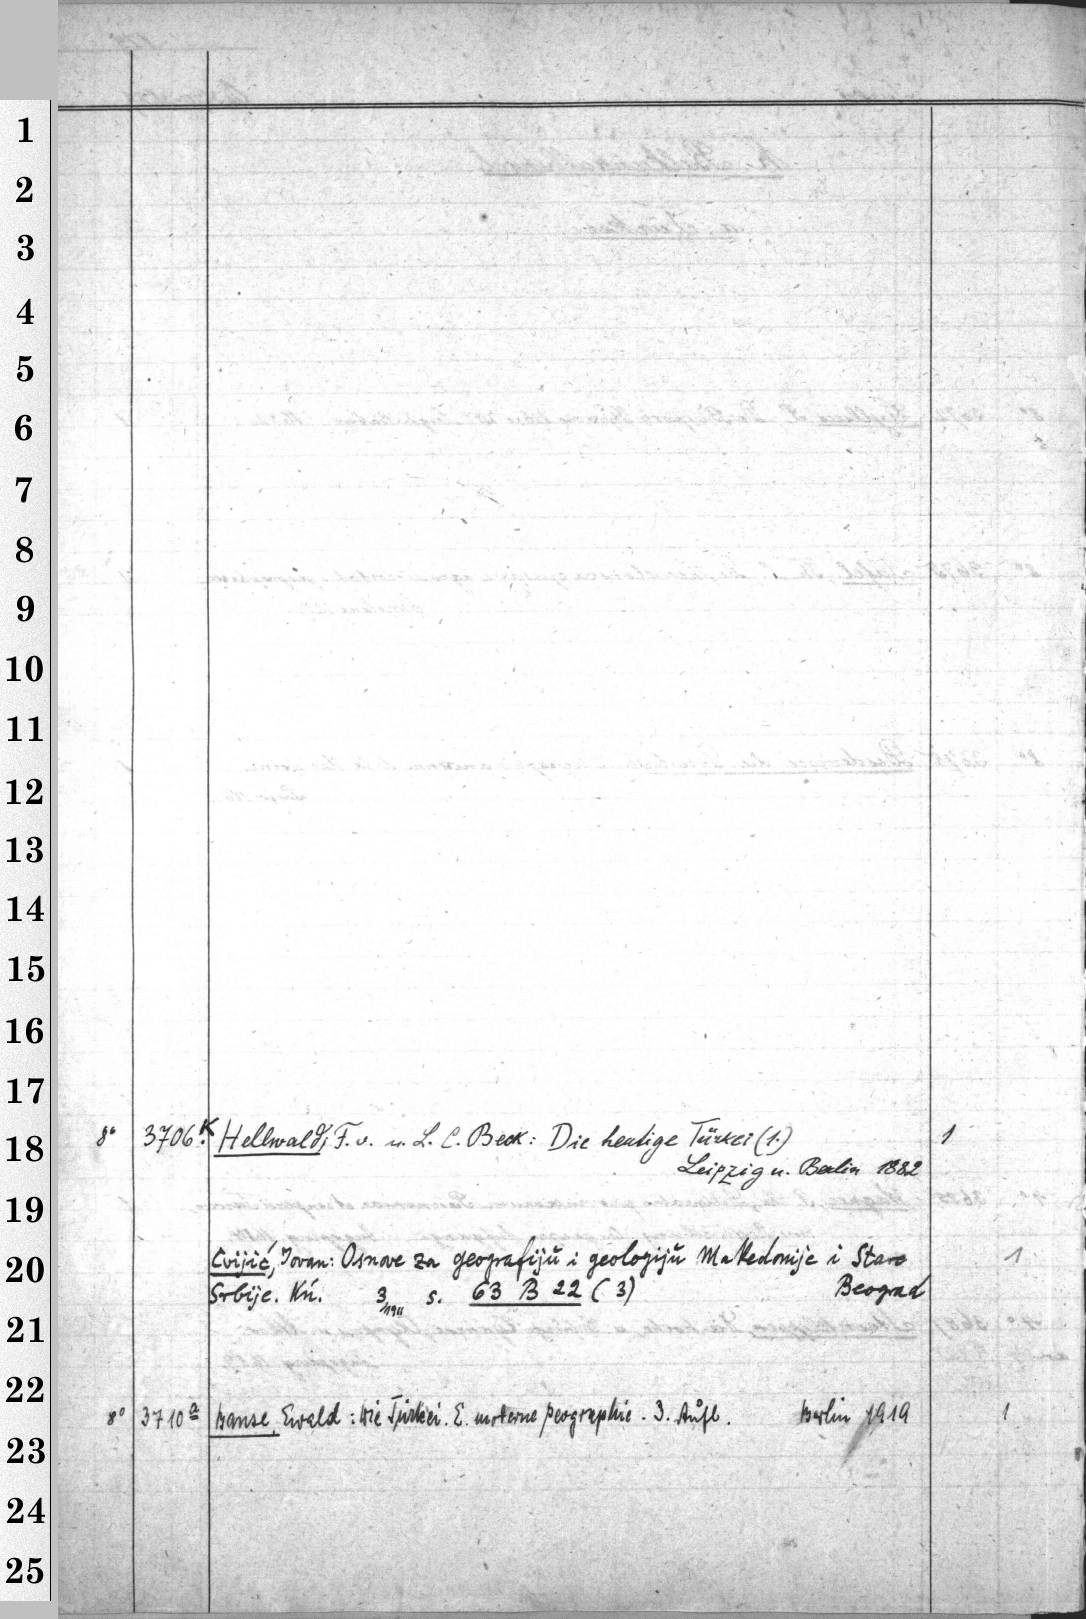 1
2
3
4
5
6
7
8
9
10
11
12
13
14
15
16
17
18
19
20
21
22
23
24
25
8° 3706.K Hellwald, F. v. u. L. C. Beck: Die heutige Türkei (1.) 1
Leipzig u. Berlin 1882
Cvijić, Jovan: Osnove za geografijŭ i geologijŭ Makedonije i Stare 1
Srbije. Kń. 3/1911 s. 63 B 22 (3) Beograd
8° 3710a Banse, Ewald: Die Türkei. E. moderne Geographie. 3. Aŭfl. Berlin 1919 1